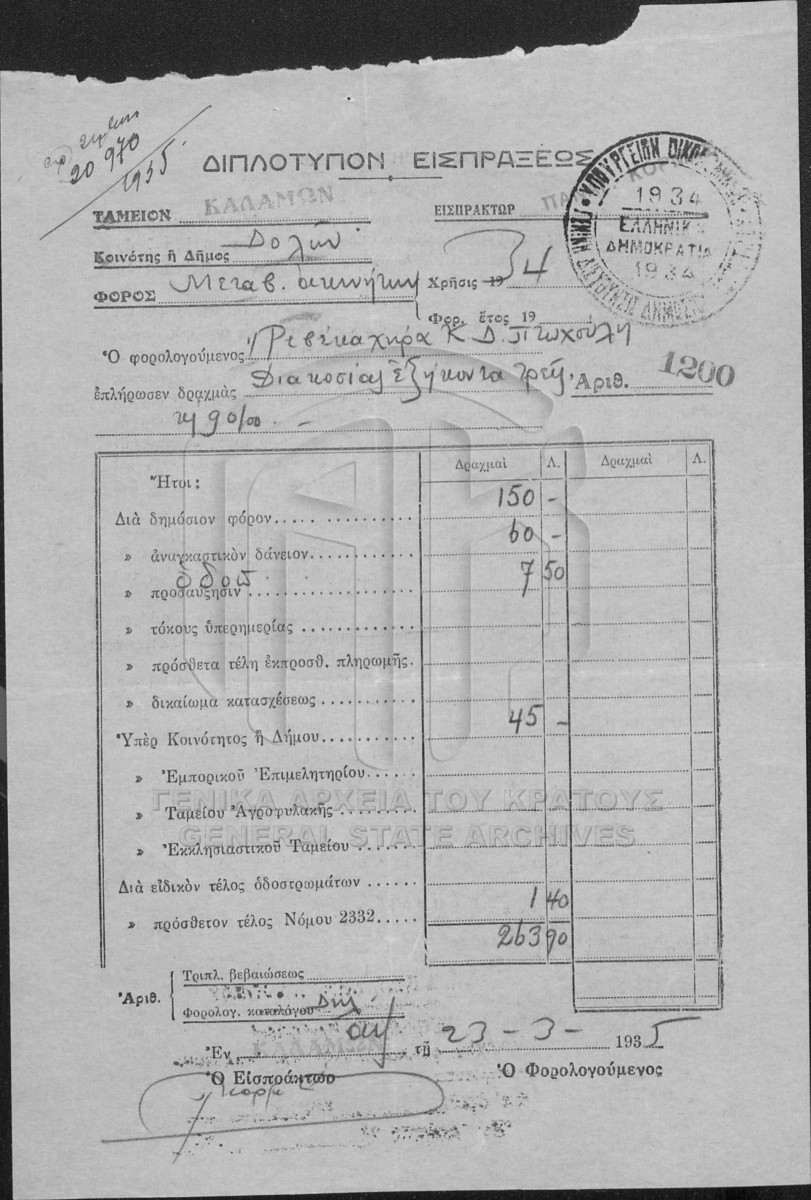 20 970
1935
ΔΙΠΛΟΤΥΠΟΝ ΕΙΣΠΡΑΞΕΩΣ
ΥΠΟΥΡΓΕΙΟΝ
1934
ΕΛΛΗΝΙΚΗ
ΔΗΜΟΚΡΑΤΙΑ
1934
ΤΑΜΕΙΟΝ ΚΑΛΑΜΩΝ
ΕΙΣΠΡΑΚΤΩΡ
Κοινότης ἢ Δῆμος Δολῶν
ΦΟΡΟΣ Μεταβ. ἀκινήτων
Χρῆσις 1934
Φορ. ἔτος 19
Ὁ φορολογούμενος χήρα Κ Δ.
ἐπλήρωσεν δραχμὰς Διακοσίας ἑξήκοντα τρεῖς Ἀριθ. 1200
90/00 -
Δραχμαὶ Λ. Δραχμαὶ Λ.
Ἤτοι:
Διὰ δημόσιον φόρον 150 -
» ἀναγκαστικὸν δάνειον 60 -
» προσαύξησιν 7 50
» τόκους ὑπερημερίας
» πρόσθετα τέλη ἐκπροσθ. πληρωμῆς.
» δικαίωμα κατασχέσεως
Ὑπὲρ Κοινότητος ἢ Δήμου 45 -
» Ἐμπορικοῦ Ἐπιμελητηρίου
ΓΕΝΙΚΑ ΑΡΧΕΙΑ ΤΟΥ ΚΡΑΤΟΥΣ
» Ταμείου Ἀγροφυλακῆς
GENERAL STATE ARCHIVES
» Ἐκκλησιαστικοῦ Ταμείου
Διὰ εἰδικὸν τέλος ὁδοστρωμάτων
» πρόσθετον τέλος Νόμου 2332 1 40
263 90
Ἀριθ.
Τριπλ. βεβαιώσεως
Φορολογ. καταλόγου
Ἐν ΚΑΛΑΜΩΝ τῇ 23-3-1935
Ὁ Εἰσπράκτωρ
Ὁ Φορολογούμενος